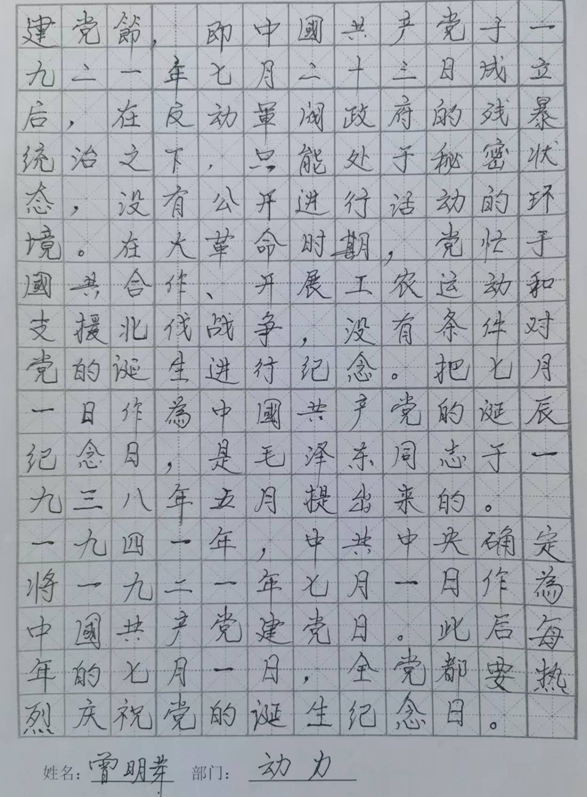 建党節，即中國共产党于一
九二一年七月二十三日成立
后，在反动軍阀政府的残暴
统治之下，只能处于秘密状
态，没有公开进行活动的环
境。在大革命时期，党忙于
國共合作、开展工农运动和
支援北伐战争，没有条件对
党的诞生进行纪念。把七月
一日作為中國共产党的诞辰
纪念日，是毛泽东同志于一
九三八年五月提出来的。
一九四一年，中共中央确定
将一九二一年七月一日作為
中國共产党建党日。此后每
年的七月一日，全党都要热
烈庆祝党的诞生纪念日。
姓名：曾明 部门：动力